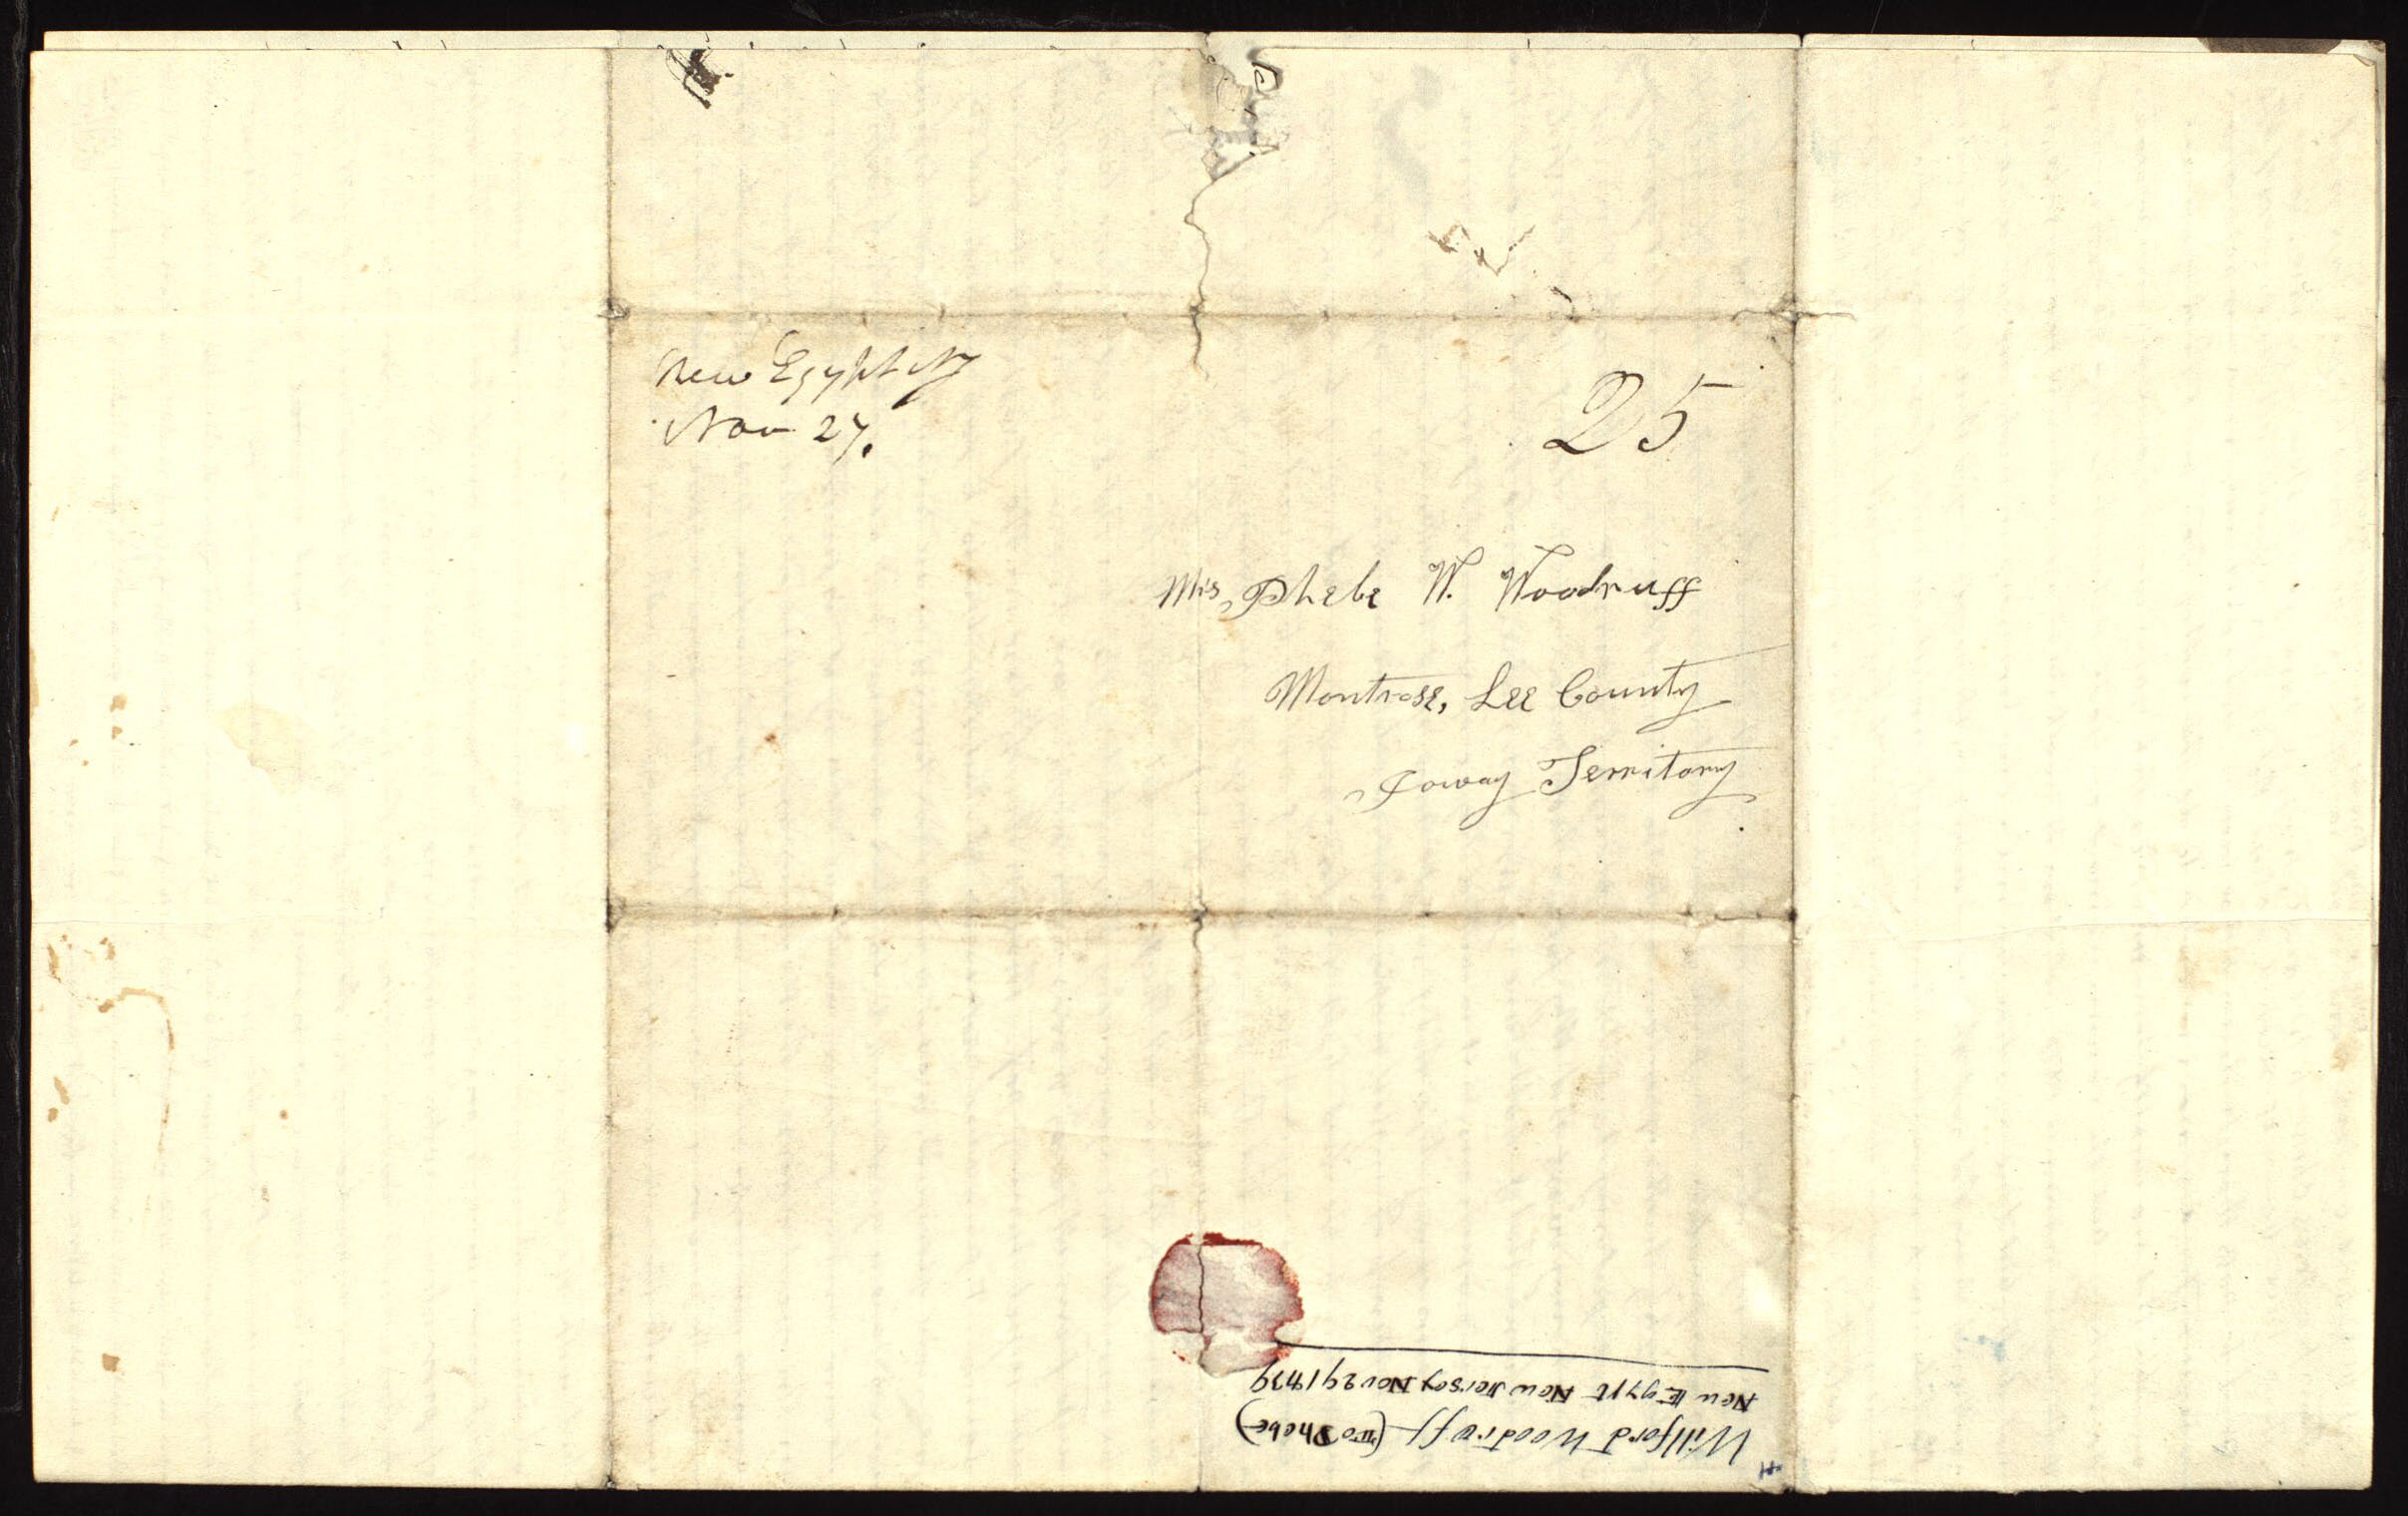 New Egypt NJ
Nov 27.
25
Mrs, Phebe W. Woodruff
Montrose, Lee County
Ioway Territory
Willford Woodruff (To Phebe)
New Egypt New Jersey Nov 29 1839